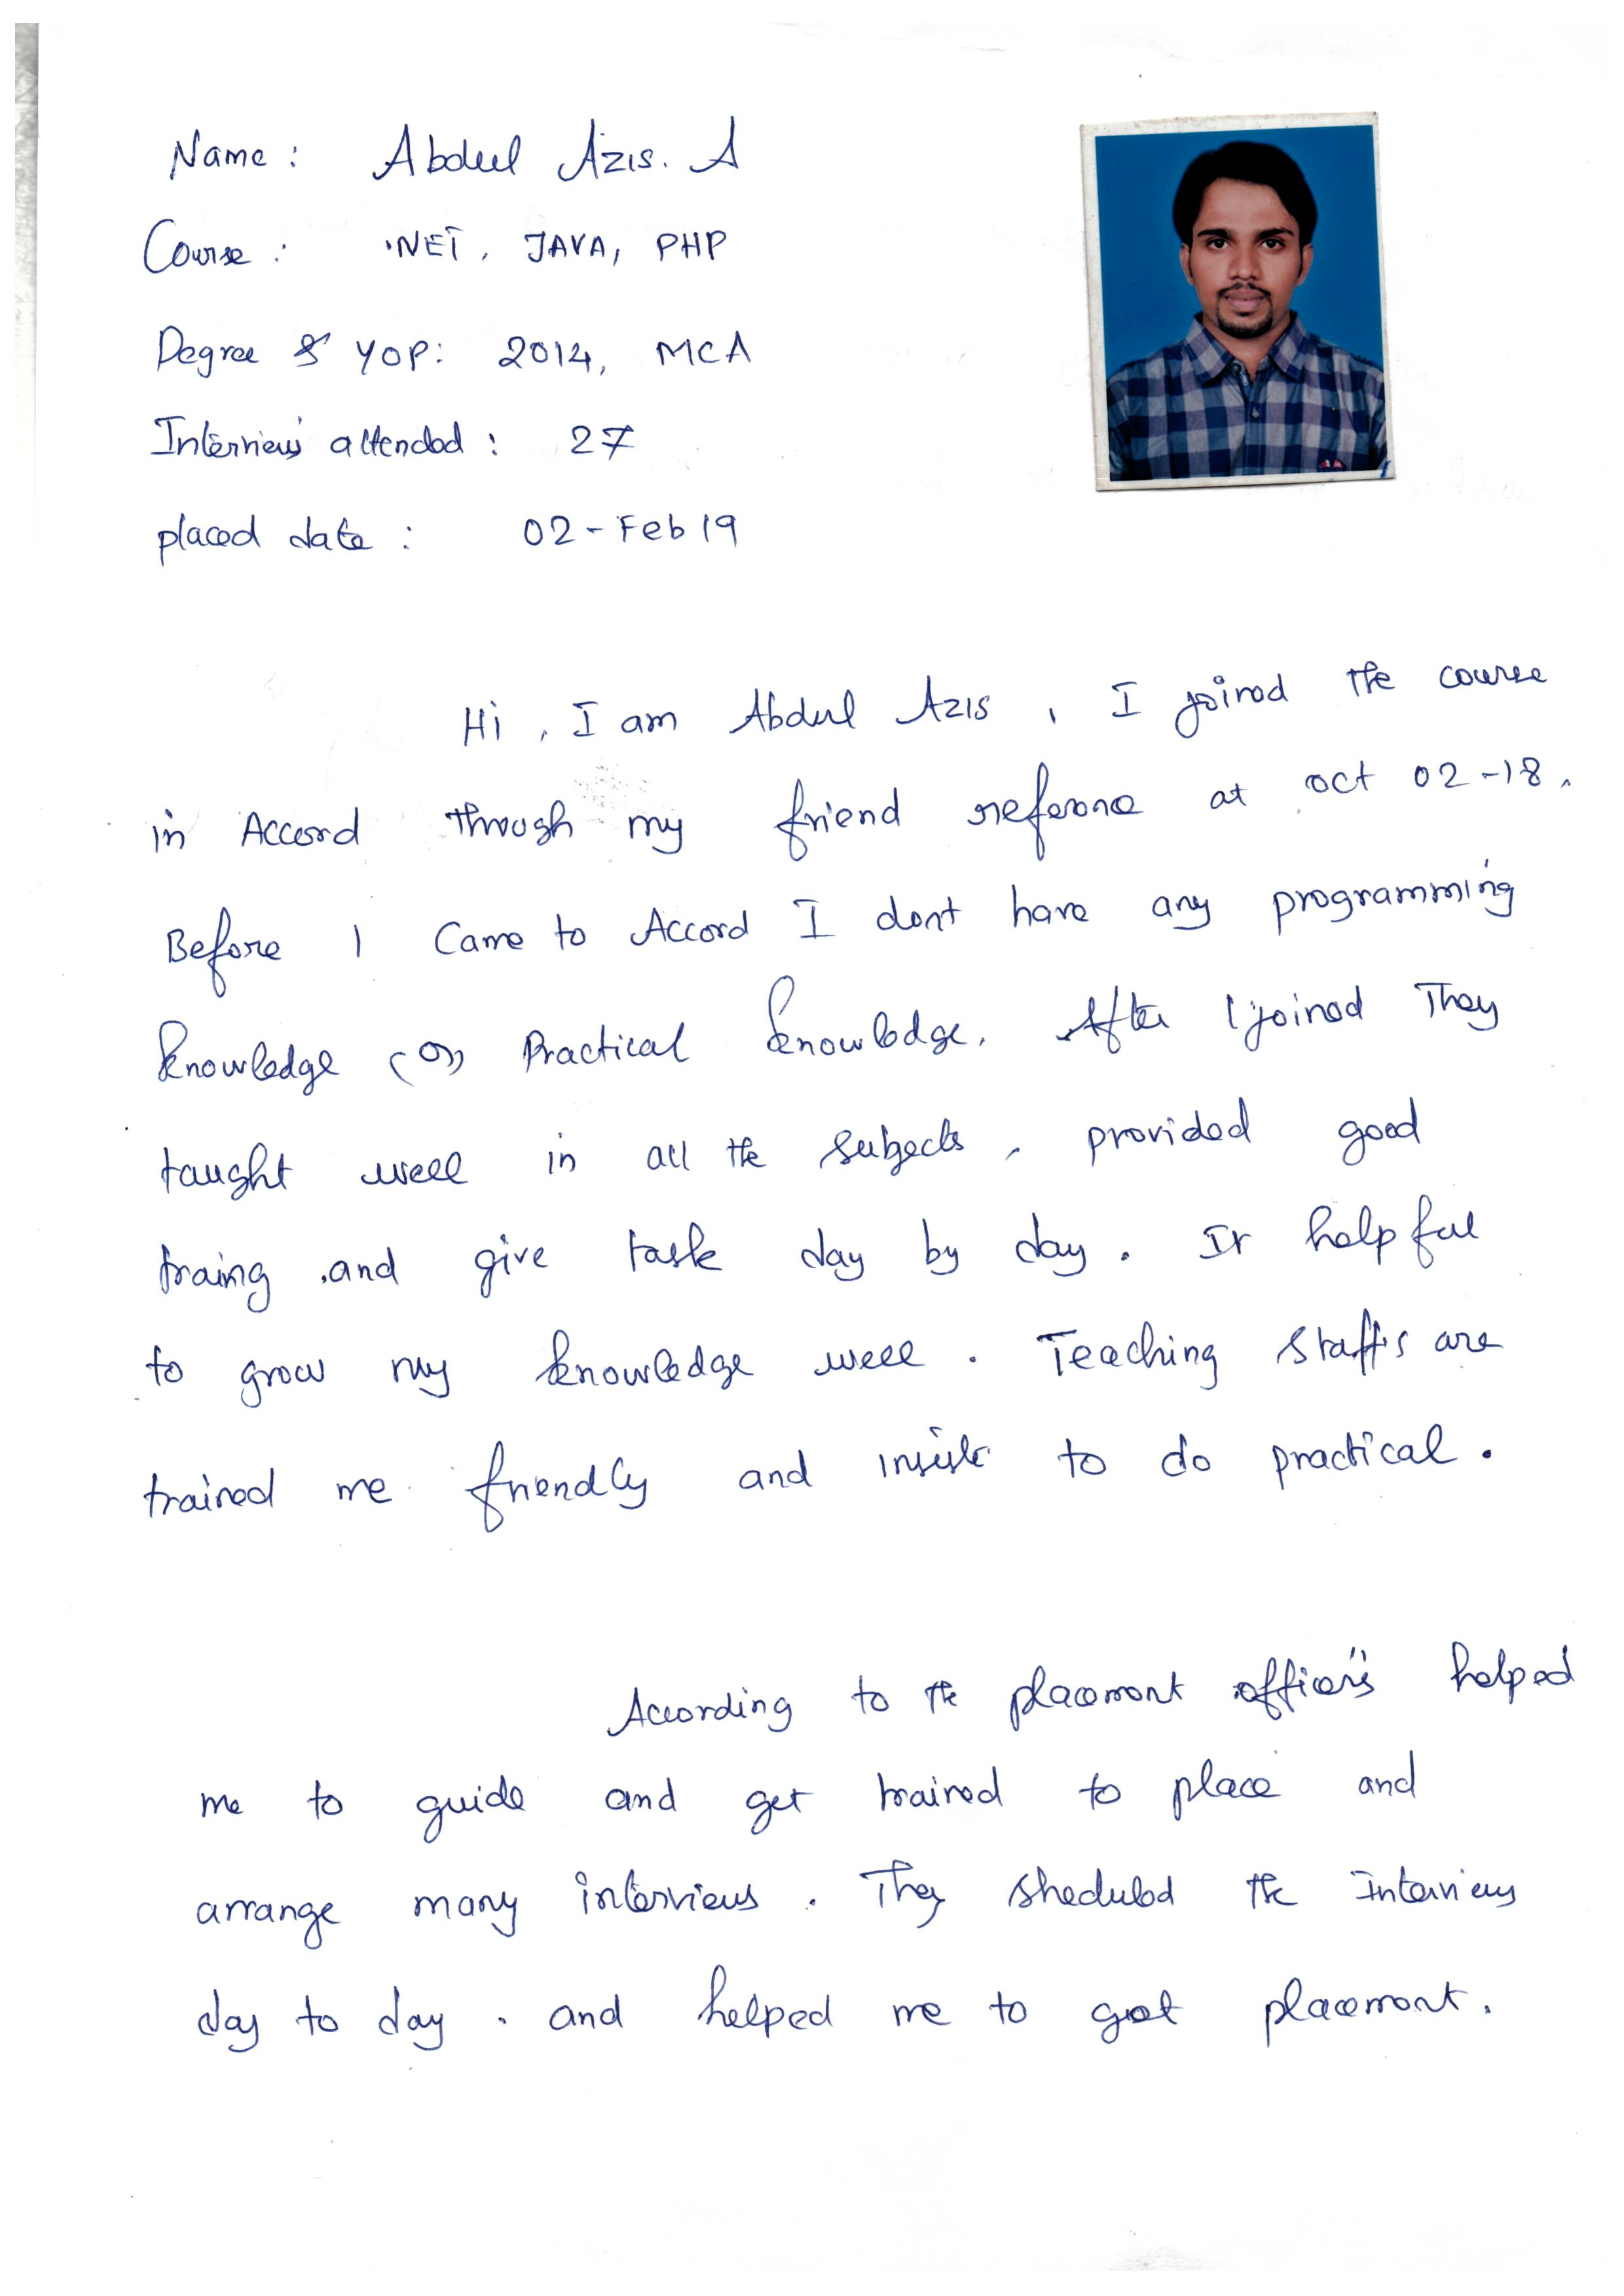 Name : Abdul Azis. A
Course : .NET, JAVA, PHP
Degree & YOP: 2014, MCA
Interview attended : 27
placed date : 02-Feb 19
Hi, I am Abdul Azis, I joined the course
in Accord through my friend reference at oct 02-18,
Before I Came to Accord I dont have any programming
knowledge (or) Practical knowledge. After I joined They
taught well in all the subjects, provided good
traing and give task day by day. It helpful
to grow my knowledge well. Teaching staffs are
trained me friendly and insist to do practical.
According to the placement officer's helped
me to guide and get trained to place and
arrange many interviews. They sheduled the Interviews
day to day. and helped me to get placement.